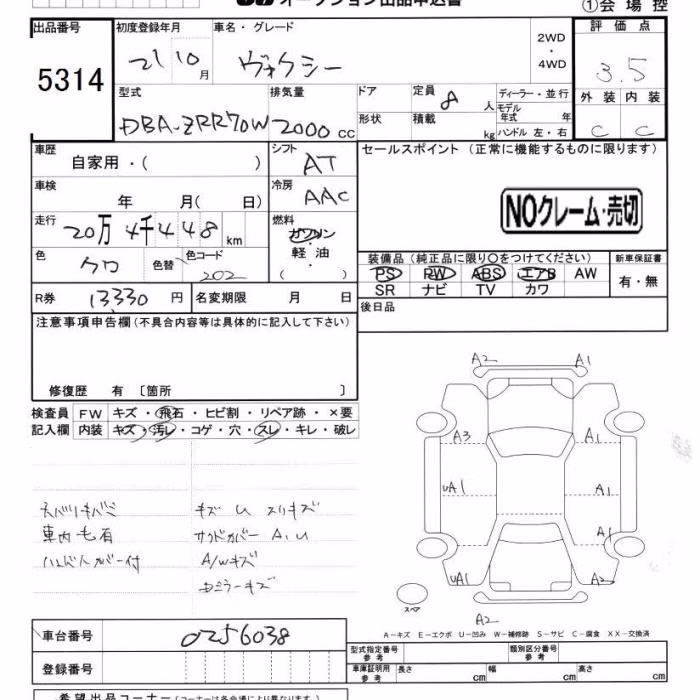 オークション出品申込書
①会場控
出品番号
5314
初度登録年月
21 10 月
車名・グレード
ヴォクシー
2WD
・
4WD
評価点
3.5
外装 内装
C C
型式
DBA-ZRR70W
排気量
2000 CC
ドア
形状
定員 8 人
積載 kg
ディーラー・並行
モデル年式 年
ハンドル 左・右
車歴
自家用・( )
シフト
AT
セールスポイント (正常に機能するものに限ります)
車検
年 月( 日)
冷房
AAC
NOクレーム・売切
走行
20万 4千 448 km
燃料
ガソリン
軽・油
( )
色
クロ
色替
色コード
202
装備品 (純正品に限り○をつけてください)
PS PW ABS エアB AW
SR ナビ TV カワ
新車保証書
有・無
R券
13330 円
名変期限 月 日
後日品
注意事項申告欄 (不具合内容等は具体的に記入して下さい)
修復歴 有 〔箇所 〕
検査員
記入欄
FW キズ・飛石・ヒビ割・リペア跡・×要
内装 キズ・汚レ・コゲ・穴・スレ・キレ・破レ
A2 A1
A3 A1
UA1 A1
A1
UA1 A2
スペア
A2
車内毛有
キズ U スリキズ
サイドカバー A,U
A/Wキズ
Dミラーキズ
A－キズ E－エクボ U－凹み W－補修跡 S－サビ C－腐食 XX－交換済
車台番号
0256038
登録番号
型式指定番号
参考
類別区分番号
参考
車庫証明用
参考
長さ cm 幅 cm 高さ cm
希望出品コーナー (コーナーは各会場により異なります。)